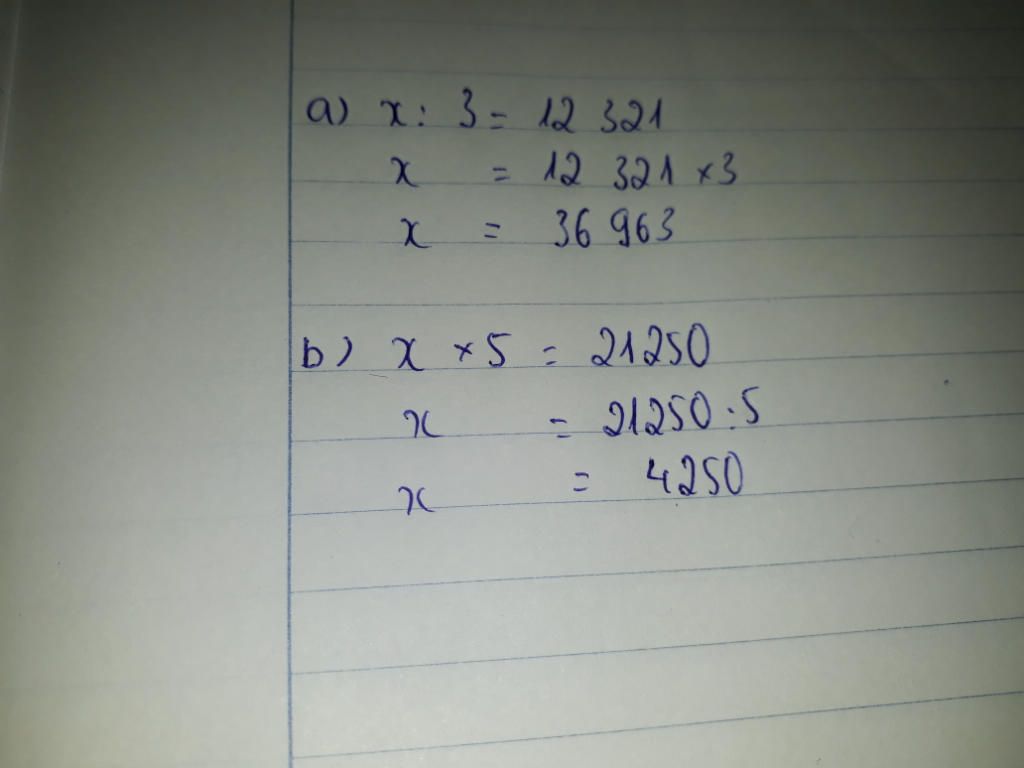 a) x : 3 = 12 321
x = 12 321 × 3
x = 36 963
b) x × 5 = 21250
x = 21250 : 5
x = 4250